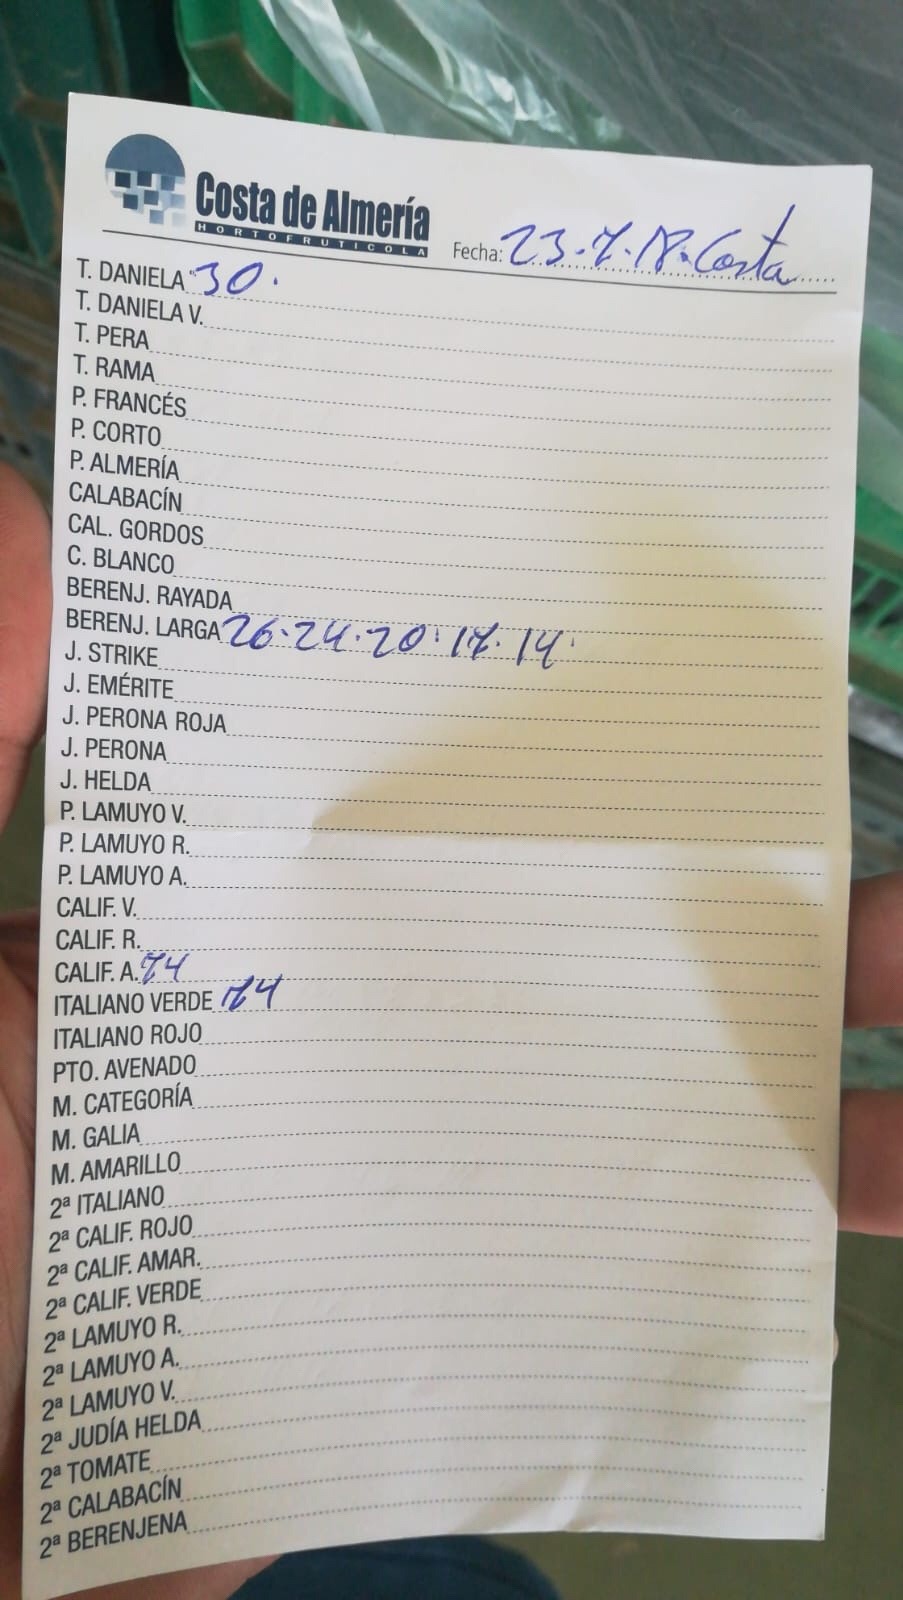 Costa de Almería
HORTOFRUTICOLA
Fecha: 23.7.18. Costa
T. DANIELA 30.
T. DANIELA V.
T. PERA
T. RAMA
P. FRANCÉS
P. CORTO
P. ALMERÍA
CALABACÍN
CAL. GORDOS
C. BLANCO
BERENJ. RAYADA
BERENJ. LARGA 26. 24. 20. 17. 14.
J. STRIKE
J. EMÉRITE
J. PERONA ROJA
J. PERONA
J. HELDA
P. LAMUYO V.
P. LAMUYO R.
P. LAMUYO A.
CALIF. V.
CALIF. R.
CALIF. A. 74
ITALIANO VERDE 74
ITALIANO ROJO
PTO. AVENADO
M. CATEGORÍA
M. GALIA
M. AMARILLO
2ª ITALIANO
2ª CALIF. ROJO
2ª CALIF. AMAR.
2ª CALIF. VERDE
2ª LAMUYO R.
2ª LAMUYO A.
2ª LAMUYO V.
2ª JUDÍA HELDA
2ª TOMATE
2ª CALABACÍN
2ª BERENJENA